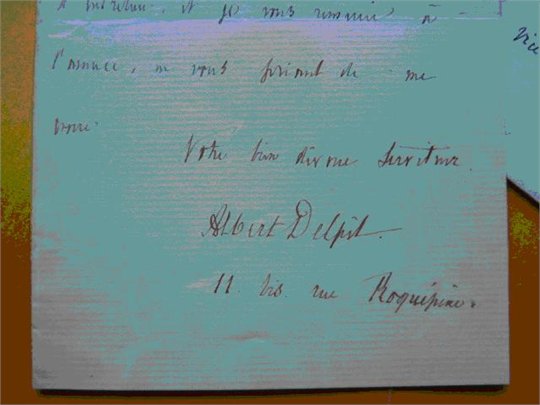 et je vous remercie à
l'avance, en vous priant de me
croire
Votre bien dévoué serviteur
Albert Delpit
11 bis rue Roquépine.